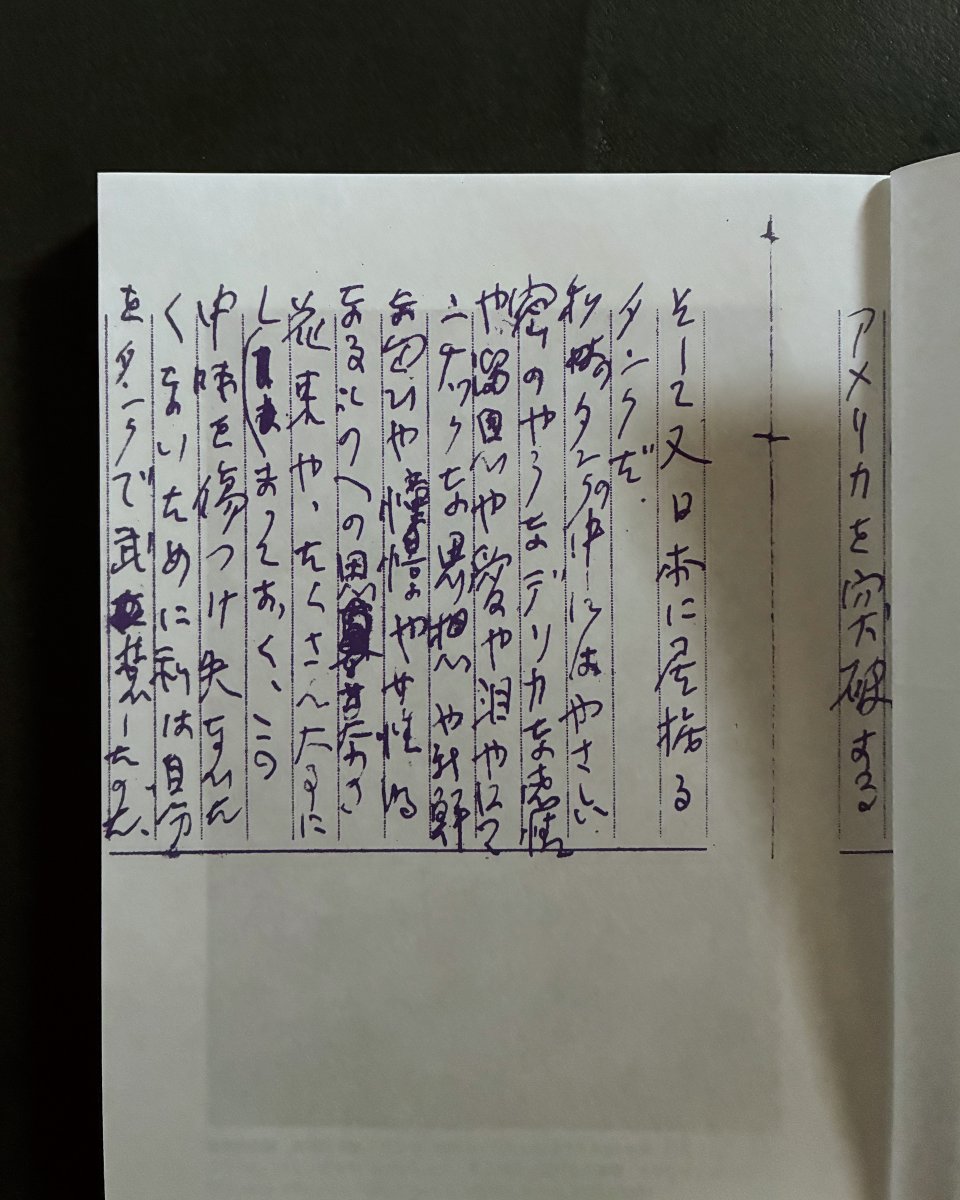 アメリカを突破する
そして又日本に居据る
タンクだ.
私のタンクの中にはやさしい
蜜のやうなデリカな感情
や、智恵や愛や泪やロマ
ンチックな思想や
な匂ひや憧憬や女性
なるものへの思
花束や、たくさん大事に
しまっておく、この
中味を傷つけ失ないた
くないために私は自分
をタンクで武装したのだ、